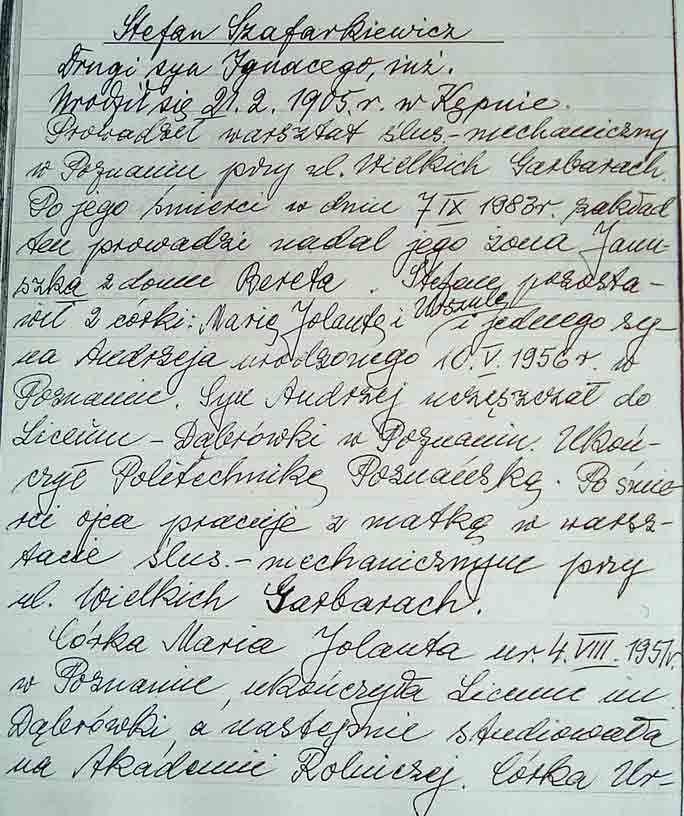 Stefan Szafarkiewicz
Drugi syn Ignacego, inż.
Urodził się 21.2.1905.r. w Kępnie.
Prowadził warsztat ślus.-mechaniczny
w Poznaniu przy ul. Wielkich Garbarach.
Po jego śmierci w dniu 7 IX 1983r. zakład
ten prowadzi nadal jego żona Janu-
szka z domu Bereta. Stefan pozosta-
wił 2 córki: Marię Jolantę i Urszulę i jednego sy-
na Andrzeja urodzonego 10.V.1956r. w
Poznaniu. Syn Andrzej uczęszczał do
Liceum - Dąbrówki w Poznaniu. Ukoń-
czył Politechnikę Poznańską. Po śmie-
rci ojca pracuje z matką w warsz-
tacie ślus.-mechanicznym przy
ul. Wielkich Garbarach.
Córka Maria Jolanta ur. 4.VIII.1951r.
w Poznaniu, ukończyła Liceum im.
Dąbrówki, a następnie studiowała
na Akademii Rolniczej. Córka Ur-